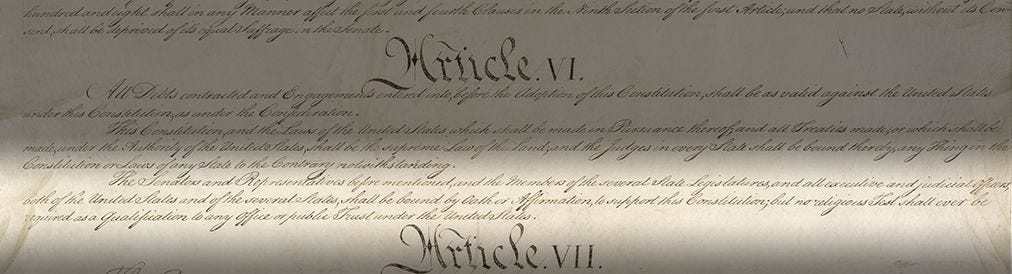 hundred and eight shall in any Manner affect the first and fourth Clauses in the Ninth Section of the first Article; and that no State, without its Con-
sent, shall be deprived of its equal Suffrage in the Senate.
Article. VI.
All Debts contracted and Engagements entered into, before the Adoption of this Constitution, shall be as valid against the United States
under this Constitution, as under the Confederation.
This Constitution, and the Laws of the United States which shall be made in Pursuance thereof; and all Treaties made, or which shall be
made, under the Authority of the United States, shall be the supreme Law of the Land; and the Judges in every State shall be bound thereby, any Thing in the
Constitution or Laws of any State to the Contrary notwithstanding.
The Senators and Representatives before mentioned, and the Members of the several State Legislatures, and all executive and judicial Officers,
both of the United States and of the several States, shall be bound by Oath or Affirmation, to support this Constitution; but no religious Test shall ever be
required as a Qualification to any Office or public Trust under the United States.
Article. VII.